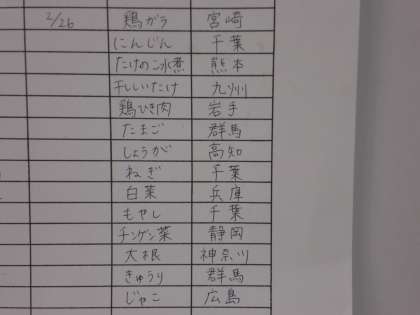 2/26 鶏ガラ 宮崎
にんじん 千葉
たけのこ水煮 熊本
干ししいたけ 九州
鶏ひき肉 岩手
たまご 群馬
しょうが 高知
ねぎ 千葉
白菜 兵庫
もやし 千葉
チンゲン菜 静岡
大根 神奈川
きゅうり 群馬
じゃこ 広島